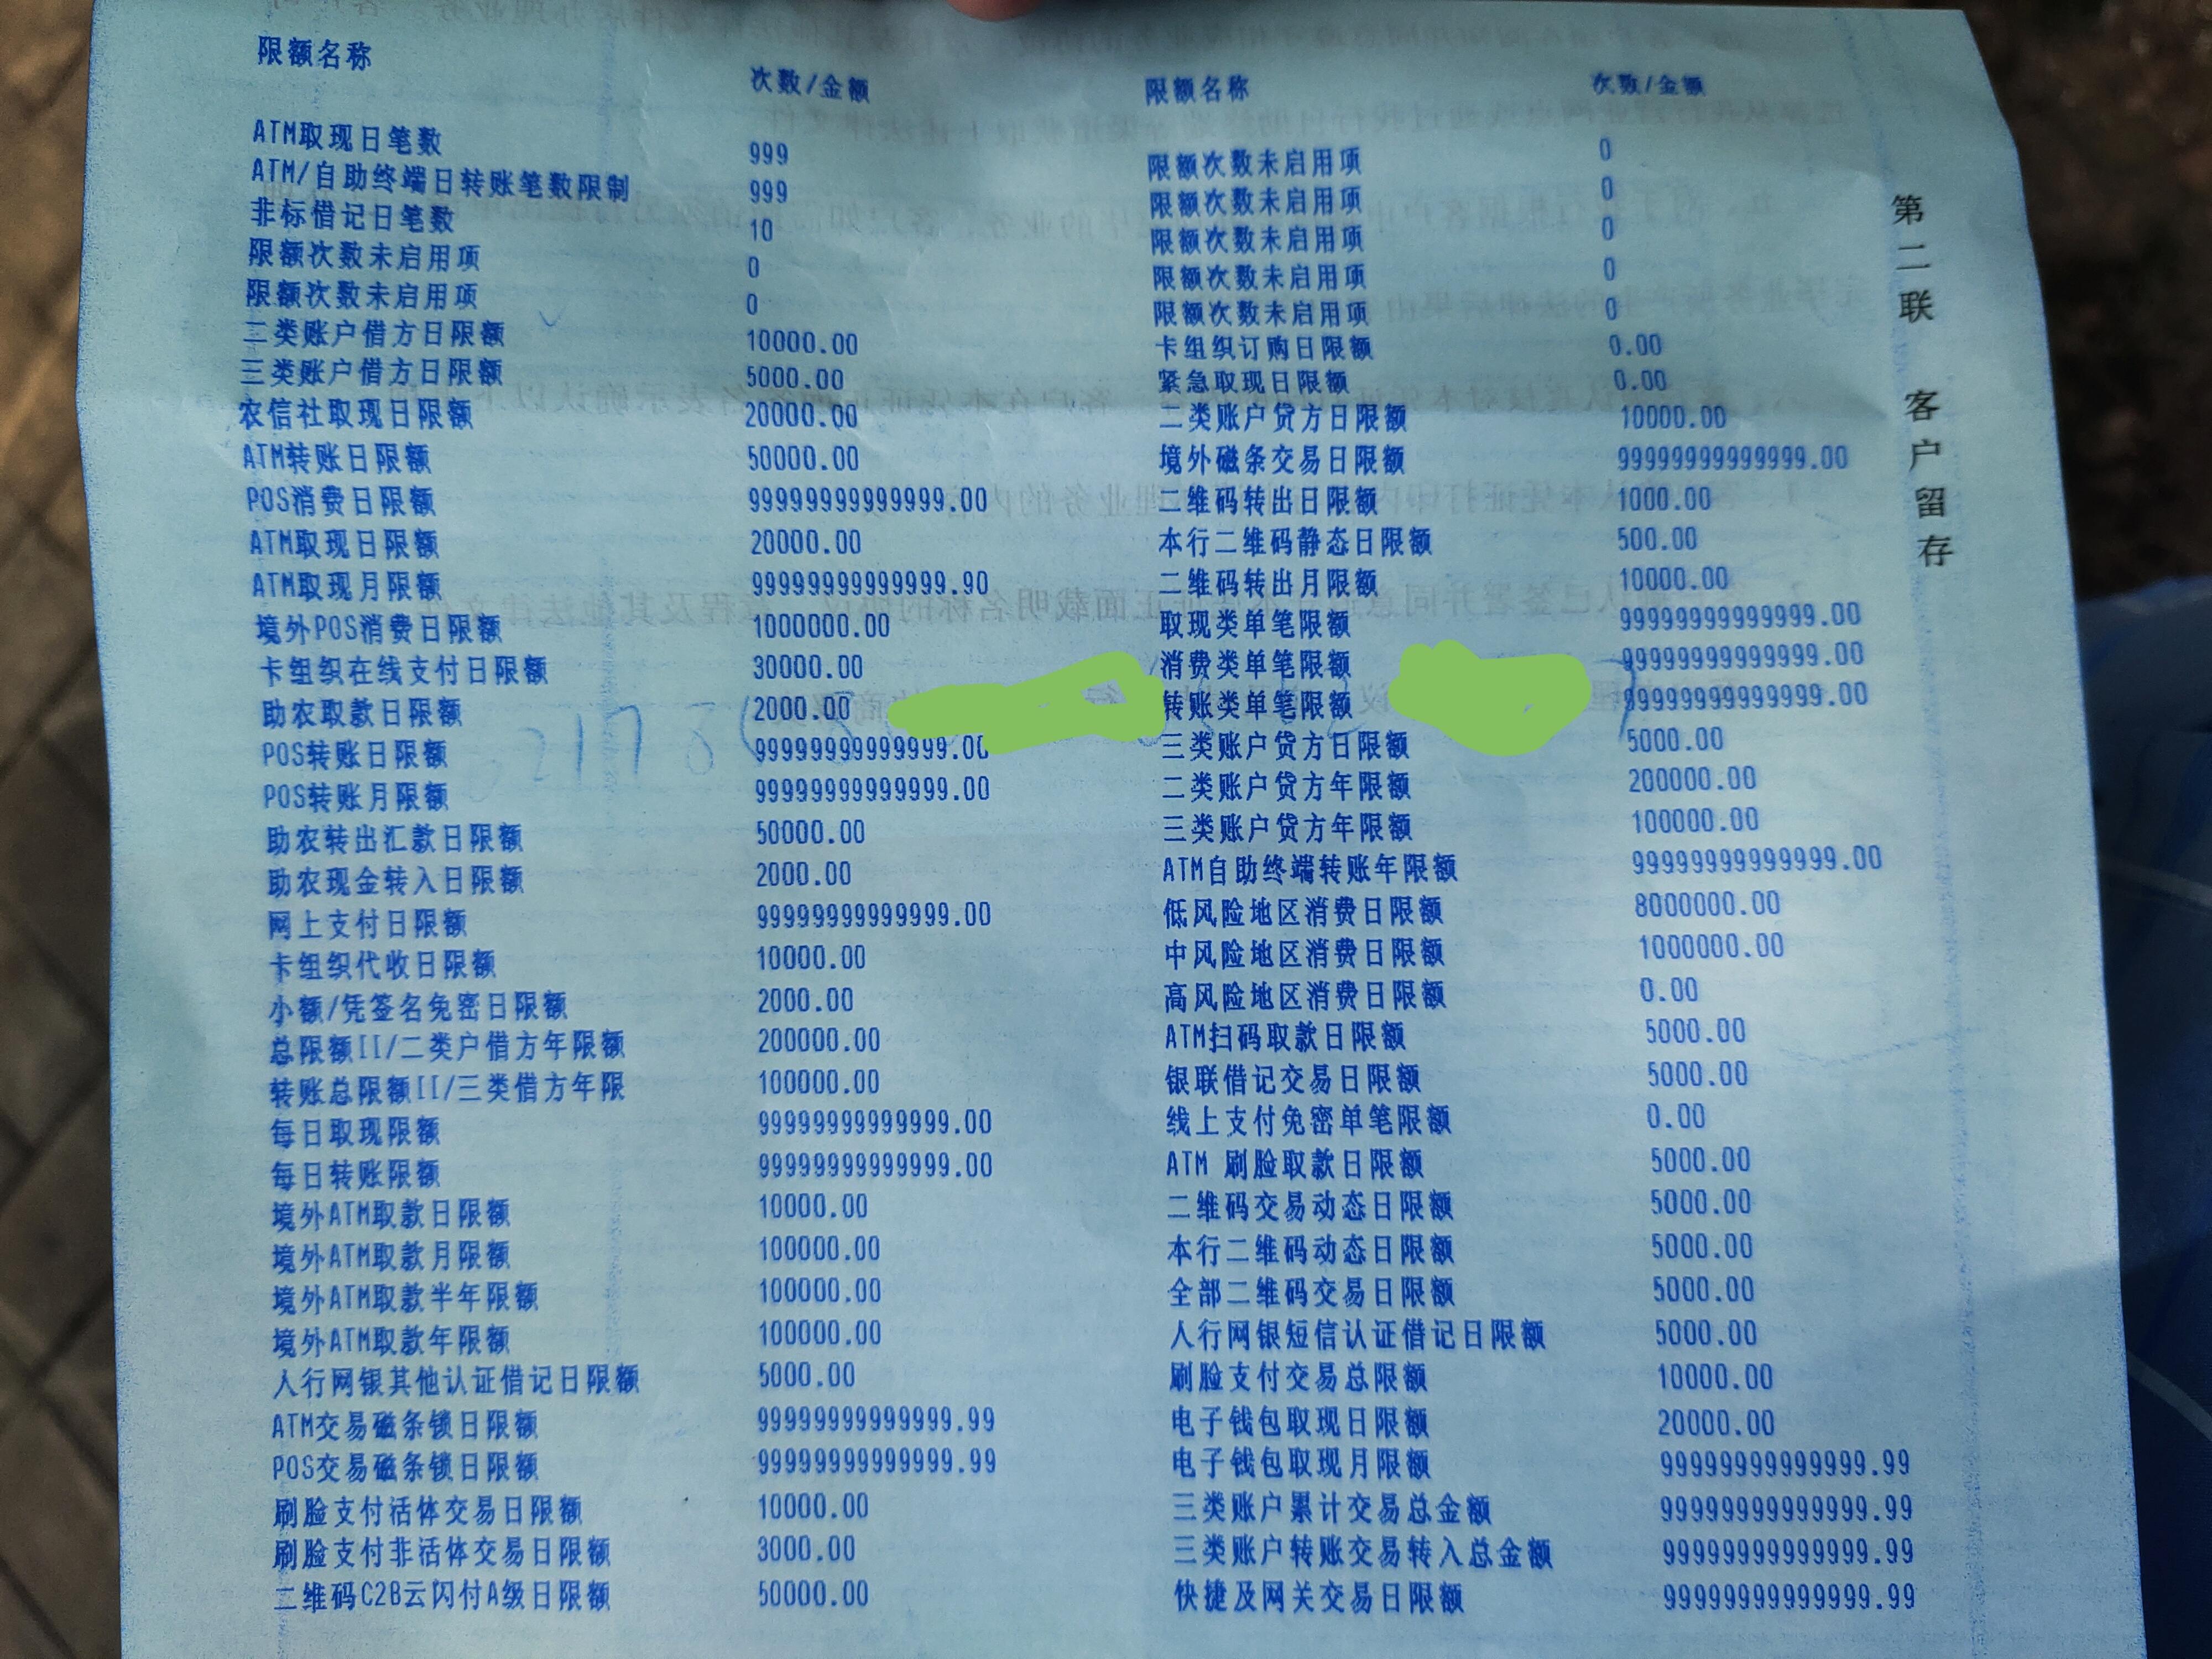 限额名称 次数/金额 限额名称 次数/金额
ATM取现日笔数 999 限额次数未启用项 0
ATM/自助终端日转账笔数限制 999 限额次数未启用项 0
非标借记日笔数 10 限额次数未启用项 0
限额次数未启用项 0 限额次数未启用项 0
限额次数未启用项 0 限额次数未启用项 0
二类账户借方日限额 10000.00 卡组织订购日限额 0.00
三类账户借方日限额 5000.00 紧急取现日限额 0.00
农信社取现日限额 20000.00 二类账户贷方日限额 10000.00
ATM转账日限额 50000.00 境外磁条交易日限额 99999999999999.00
POS消费日限额 99999999999999.00 二维码转出日限额 1000.00
ATM取现日限额 20000.00 本行二维码静态日限额 500.00
ATM取现月限额 99999999999999.90 二维码转出月限额 10000.00
境外POS消费日限额 1000000.00 取现类单笔限额 99999999999999.00
卡组织在线支付日限额 30000.00 消费类单笔限额 99999999999999.00
助农取款日限额 2000.00 转账类单笔限额 99999999999999.00
POS转账日限额 99999999999999.00 三类账户贷方日限额 5000.00
POS转账月限额 99999999999999.00 二类账户贷方年限额 200000.00
助农转出汇款日限额 50000.00 三类账户贷方年限额 100000.00
助农现金转入日限额 2000.00 ATM自助终端转账年限额 99999999999999.00
网上支付日限额 99999999999999.00 低风险地区消费日限额 8000000.00
卡组织代收日限额 10000.00 中风险地区消费日限额 1000000.00
小额/凭签名免密日限额 2000.00 高风险地区消费日限额 0.00
总限额II/二类户借方年限额 200000.00 ATM扫码取款日限额 5000.00
转账总限额II/三类借方年限 100000.00 银联借记交易日限额 5000.00
每日取现限额 99999999999999.00 线上支付免密单笔限额 0.00
每日转账限额 99999999999999.00 ATM 刷脸取款日限额 5000.00
境外ATM取款日限额 10000.00 二维码交易动态日限额 5000.00
境外ATM取款月限额 100000.00 本行二维码动态日限额 5000.00
境外ATM取款半年限额 100000.00 全部二维码交易日限额 5000.00
境外ATM取款年限额 100000.00 人行网银短信认证借记日限额 5000.00
人行网银其他认证借记日限额 5000.00 刷脸支付交易总限额 10000.00
ATM交易磁条锁日限额 99999999999999.99 电子钱包取现日限额 20000.00
POS交易磁条锁日限额 99999999999999.99 电子钱包取现月限额 99999999999999.99
刷脸支付活体交易日限额 10000.00 三类账户累计交易总金额 99999999999999.99
刷脸支付非活体交易日限额 3000.00 三类账户转账交易转入总金额 99999999999999.99
二维码C2B云闪付A级日限额 50000.00 快捷及网关交易日限额 99999999999999.99
第二联 客户留存